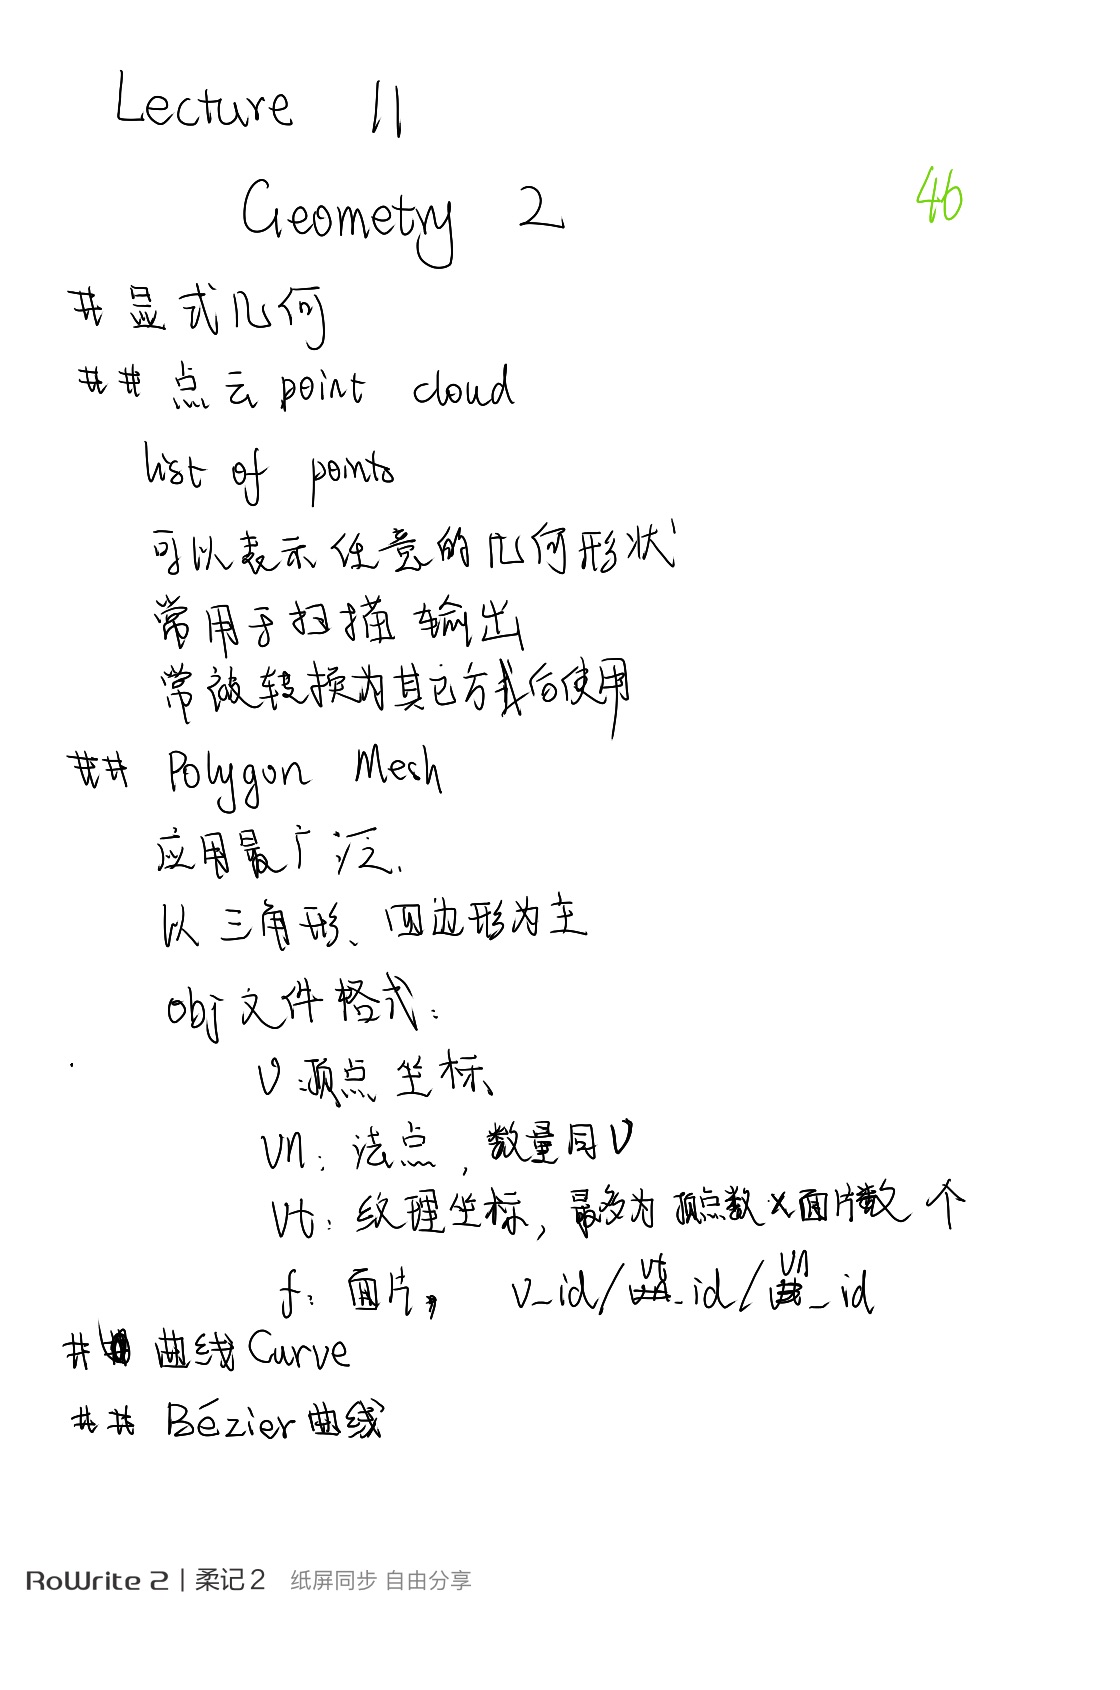 Lecture 11
Geometry 2
46
# 显式几何
## 点云 point cloud
list of points
可以表示任意的几何形状
常用于扫描输出
常被转换为其它方式后使用
## Polygon Mesh
应用最广泛.
以三角形、四边形为主
obj文件格式:
v:顶点坐标
vn:法点,数量同v
vt:纹理坐标,最多为顶点数×面片数个
f:面片, v_id/vt_id/vn_id
# 曲线Curve
## Bézier曲线
RoWrite 2 | 柔记2 纸屏同步 自由分享